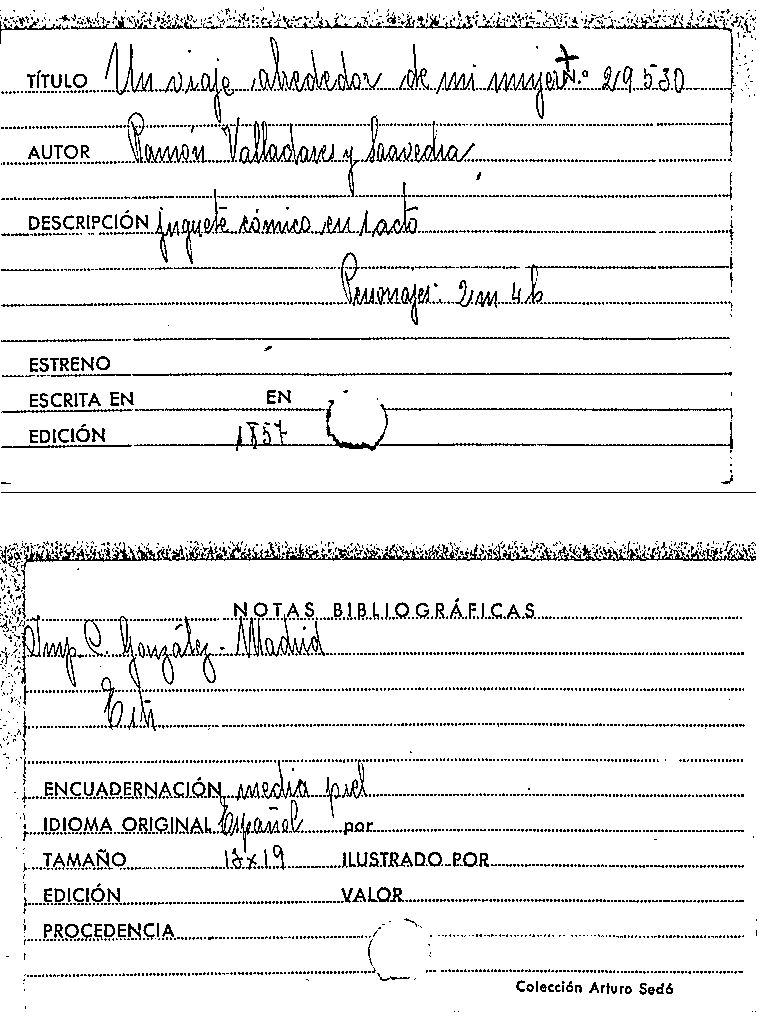 TÍTULO Un viaje alrededor de mi mujer N.º 29530
AUTOR Ramón Valladares y Saavedra
DESCRIPCIÓN juguete cómico en 1 acto
Personajes: 2m 4h
ESTRENO
ESCRITA EN EN
EDICIÓN 1857
NOTAS BIBLIOGRÁFICAS
Imp. C. González - Madrid
ENCUADERNACIÓN media piel
IDIOMA ORIGINAL Español por
TAMAÑO 13x19 ILUSTRADO POR
EDICIÓN VALOR
PROCEDENCIA
Colección Arturo Sedó